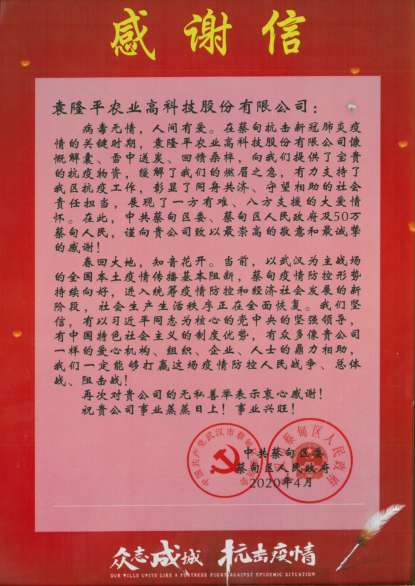 感谢信
袁隆平农业高科技股份有限公司：
病毒无情，人间有爱。在蔡甸抗击新冠肺炎疫
情的关键时期，袁隆平农业高科技股份有限公司慷
慨解囊、雪中送炭、回馈桑梓，向我们提供了宝贵
的抗疫物资，缓解了我们的燃眉之急，有力支持了
我区抗疫工作，彰显了同舟共济、守望相助的社会
责任担当，展现了一方有难、八方支援的大爱情
怀。在此，中共蔡甸区委、蔡甸区人民政府及50万
蔡甸人民，谨向贵公司致以最崇高的敬意和最诚挚
的感谢！
春回大地，知音花开。当前，以武汉为主战场
的全国本土疫情传播基本阻断，蔡甸疫情防控形势
持续向好，进入统筹疫情防控和经济社会发展的新
阶段，社会生产生活秩序正在全面恢复。我们坚
信，有以习近平同志为核心的党中央的坚强领导，
有中国特色社会主义的制度优势，有众多像贵公司
一样的爱心机构、组织、企业、人士的鼎力相助，
我们一定能够打赢这场疫情防控人民战争、总体
战、阻击战！
再次对贵公司的无私善举表示衷心感谢！
祝贵公司事业蒸蒸日上！事业兴旺！
中共蔡甸区委
蔡甸区人民政府
2020年4月
众志成城 抗击疫情
OUR WILLS UNITE LIKE A FORTRESS FIGHT AGAINST EPIDEMIC SITUATION